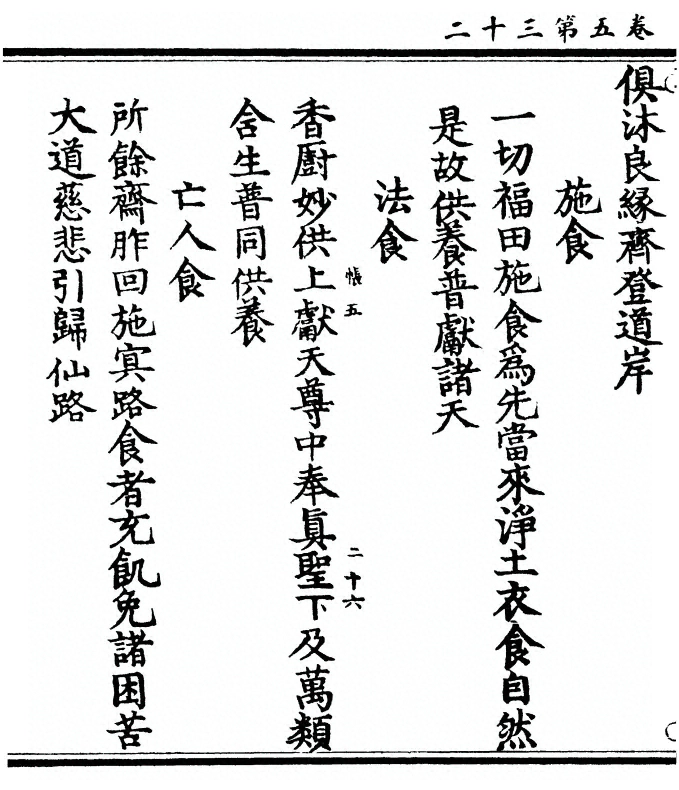 卷五第三十二
俱沐良緣齊登道岸
施食
一切福田施食爲先當來淨土衣食自然
是故供養普獻諸天
法食
香廚妙供上獻天尊中奉眞聖下及萬類
帳五
二十六
含生普同供養
亡人食
所餘齋胙回施冥路食者充飢免諸困苦
大道慈悲引歸仙路